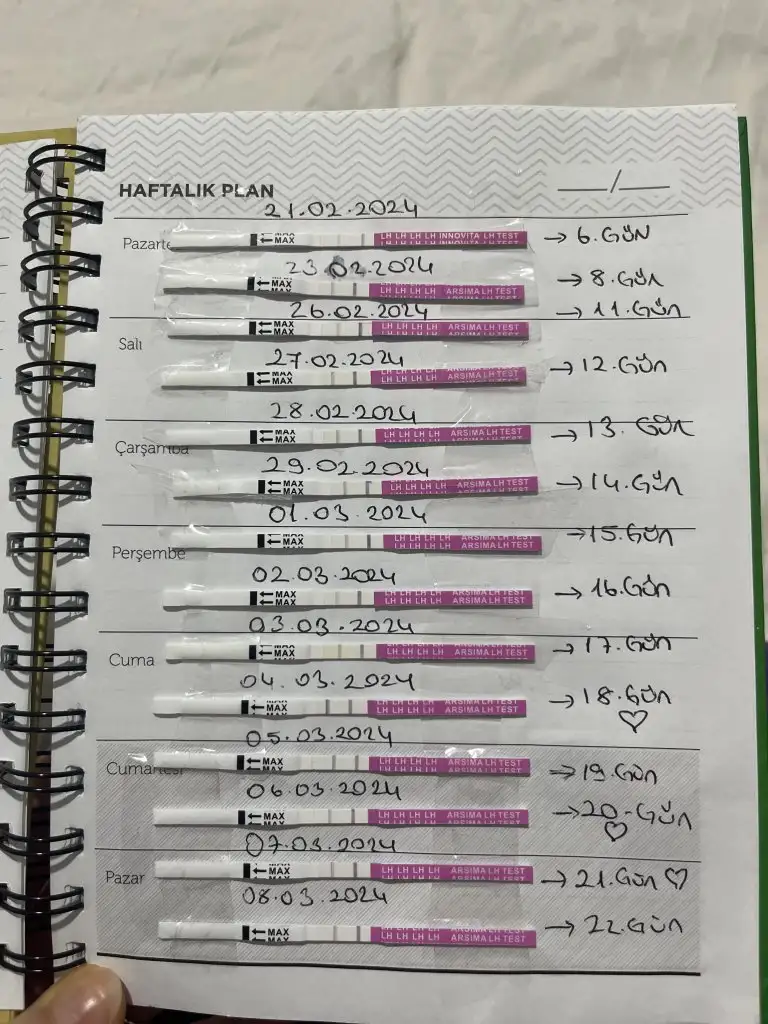 HAFTALIK PLAN
___/___
21.02.2024
Pazarte
MAX
LH LH LH LH INNOVITA LH TEST
→ 6.GÜN
23.02.2024
MAX
LH LH LH LH ARSIMA LH TEST
→ 8.GÜN
26.02.2024
→ 11.GÜN
Salı
MAX
MAX
LH LH LH LH ARSIMA LH TEST
27.02.2024
MAX
MAX
LH LH LH LH ARSIMA LH TEST
→ 12.GÜN
28.02.2024
Çarşamba
MAX
LH LH LH LH ARSIMA LH TEST
→ 13.GÜN
29.02.2024
MAX
MAX
LH LH LH LH ARSIMA LH TEST
→ 14.GÜN
01.03.2024
Perşembe
MAX
LH LH LH LH ARSIMA LH TEST
→ 15.GÜN
02.03.2024
MAX
MAX
LH LH LH LH ARSIMA LH TEST
→ 16.GÜN
03.03.2024
Cuma
MAX
LH LH LH LH ARSIMA LH TEST
→ 17.GÜN
04.03.2024
MAX
LH LH LH LH ARSIMA LH TEST
→ 18.GÜN
♡
05.03.2024
Cumartesi
MAX
MAX
LH LH LH LH ARSIMA LH TEST
→ 19.GÜN
06.03.2024
MAX
MAX
LH LH LH LH ARSIMA LH TEST
→ 20-GÜN
♡
07.03.2024
Pazar
MAX
LH LH LH LH ARSIMA LH TEST
→ 21.GÜN ♡
08.03.2024
MAX
MAX
LH LH LH LH ARSIMA LH TEST
→ 22.GÜN